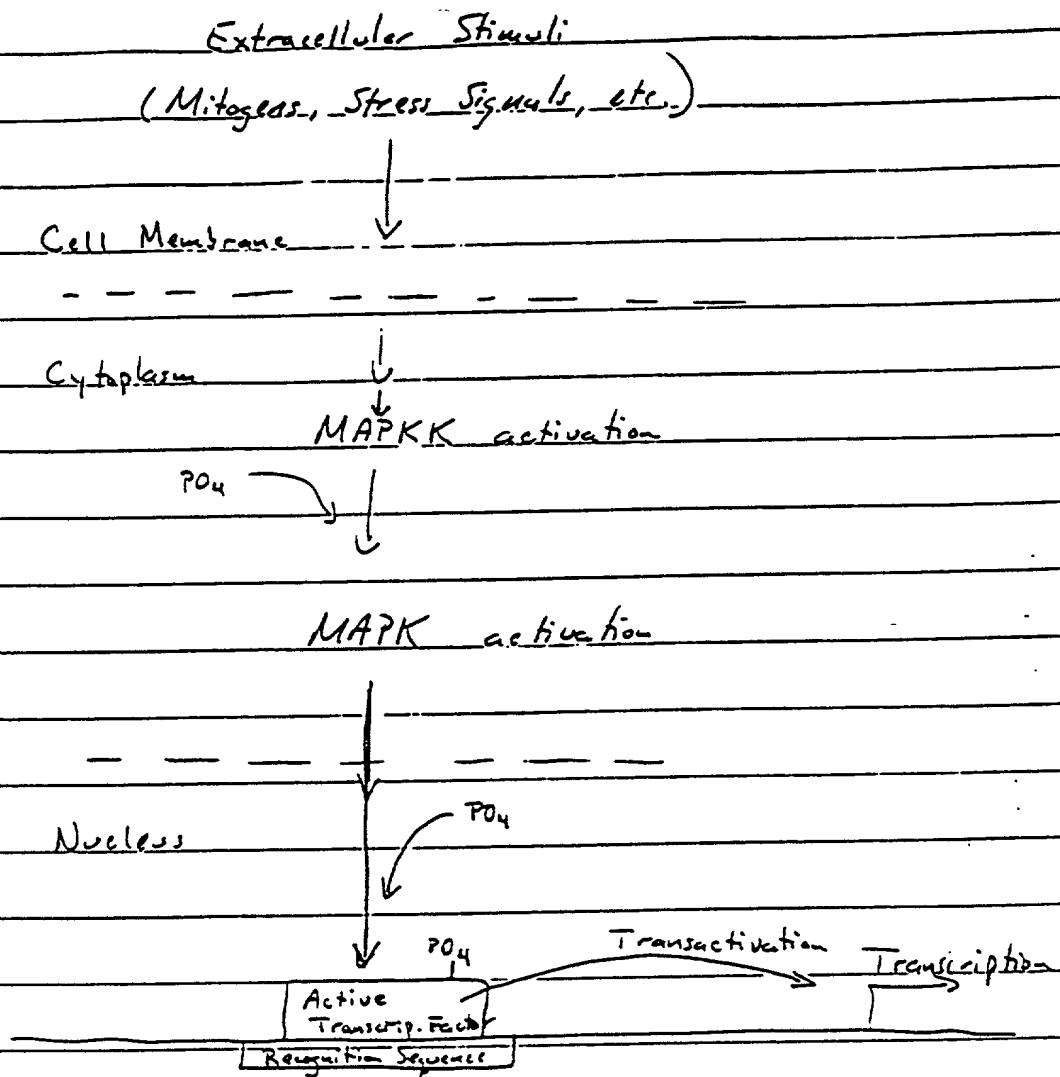 Extracellular Stimuli
(Mitogens, Stress Signals, etc.)
Cell Membrane
Cytoplasm
MAPKK activation
PO4
MAPK activation
PO4
Nucleus
PO4
Transactivation
Transcription
Active
Transcrip. Factor
Recognition Sequence